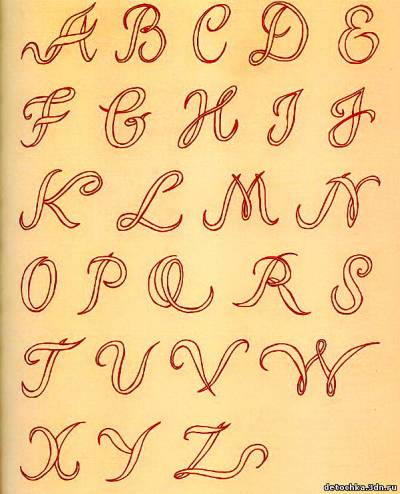 A B C D E
F G H I J
K L M N
O P Q R S
T U V W
X Y Z
detochka.3dn.ru